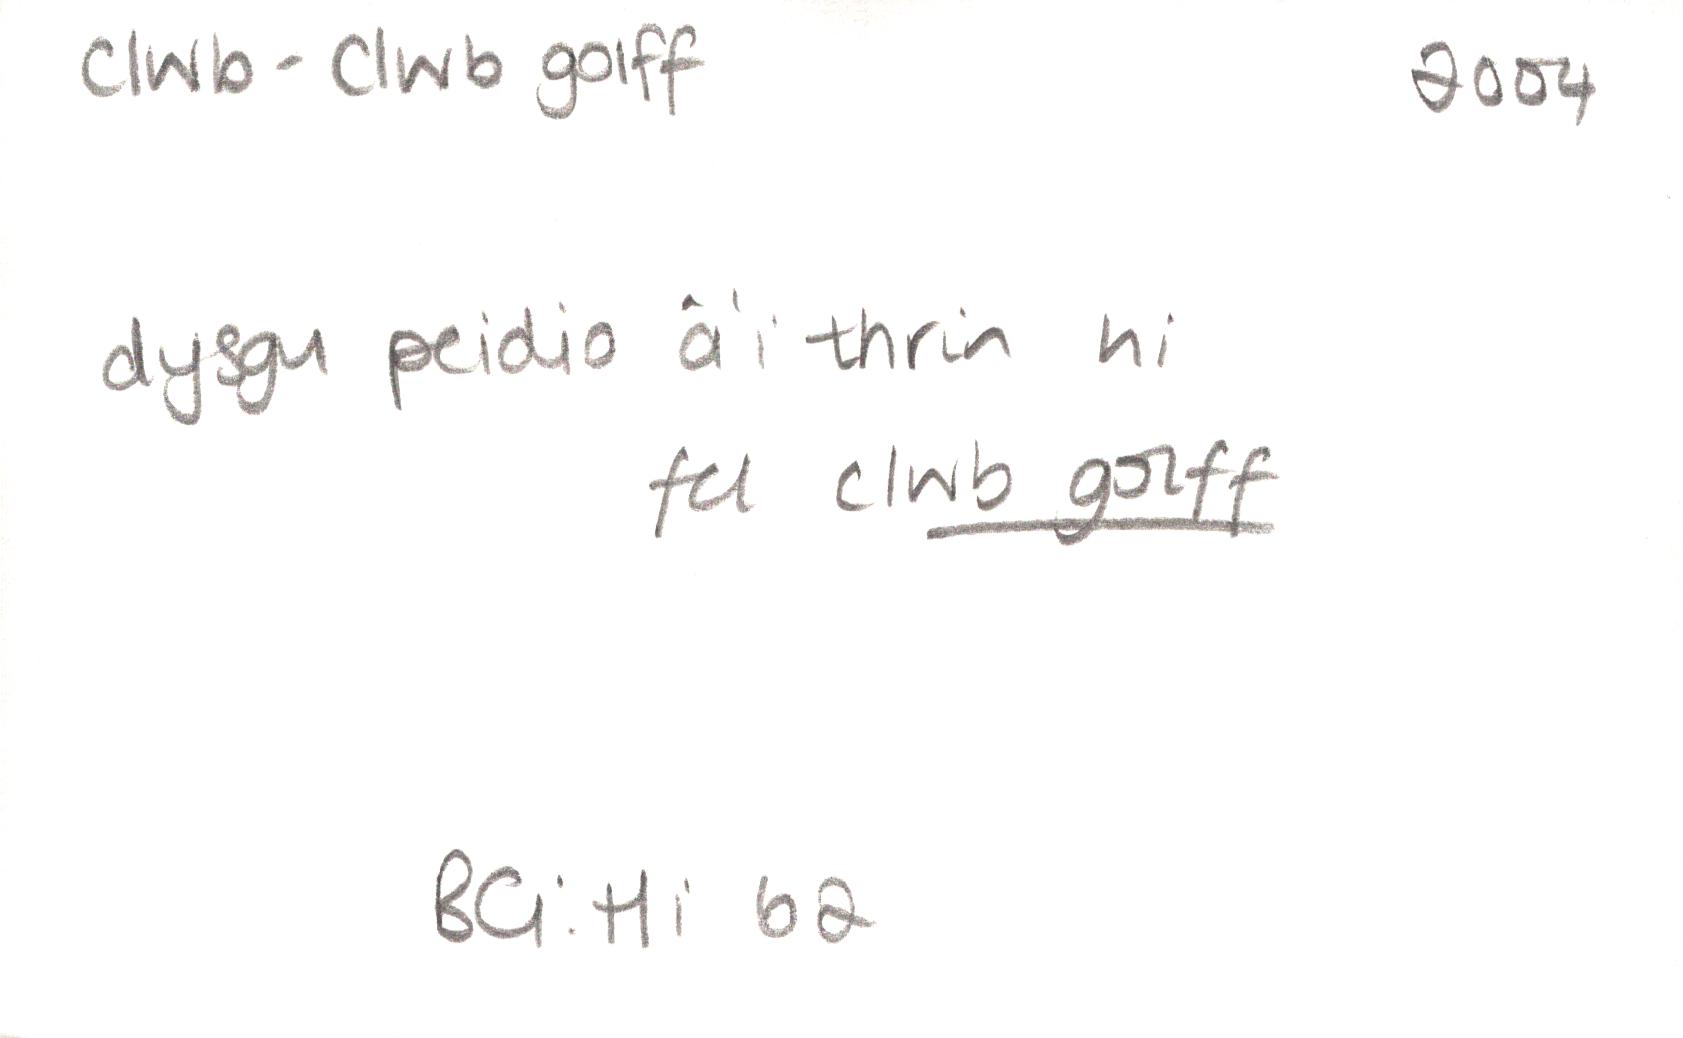 clwb - Clwb golff 2004
dysgu peidio â'i thrin hi
fel clwb golff
BG: Hi 62